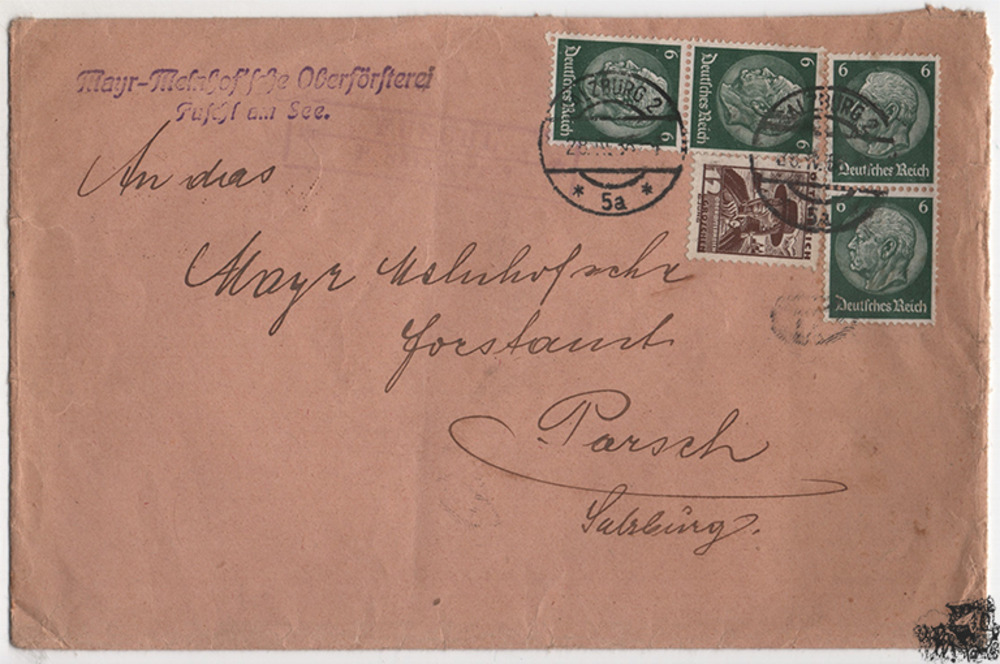 Mayr-Melnhof'sche Oberförsterei
Fuschl am See.
An das
Mayr Melnhofsche
Forstamt
Parsch
Salzburg.
6 Deutsches Reich 6
6 Deutsches Reich 6
6 6
Deutsches Reich
6
Deutsches Reich
12
SALZBURG 2
* 5a *
SALZBURG 2
5a